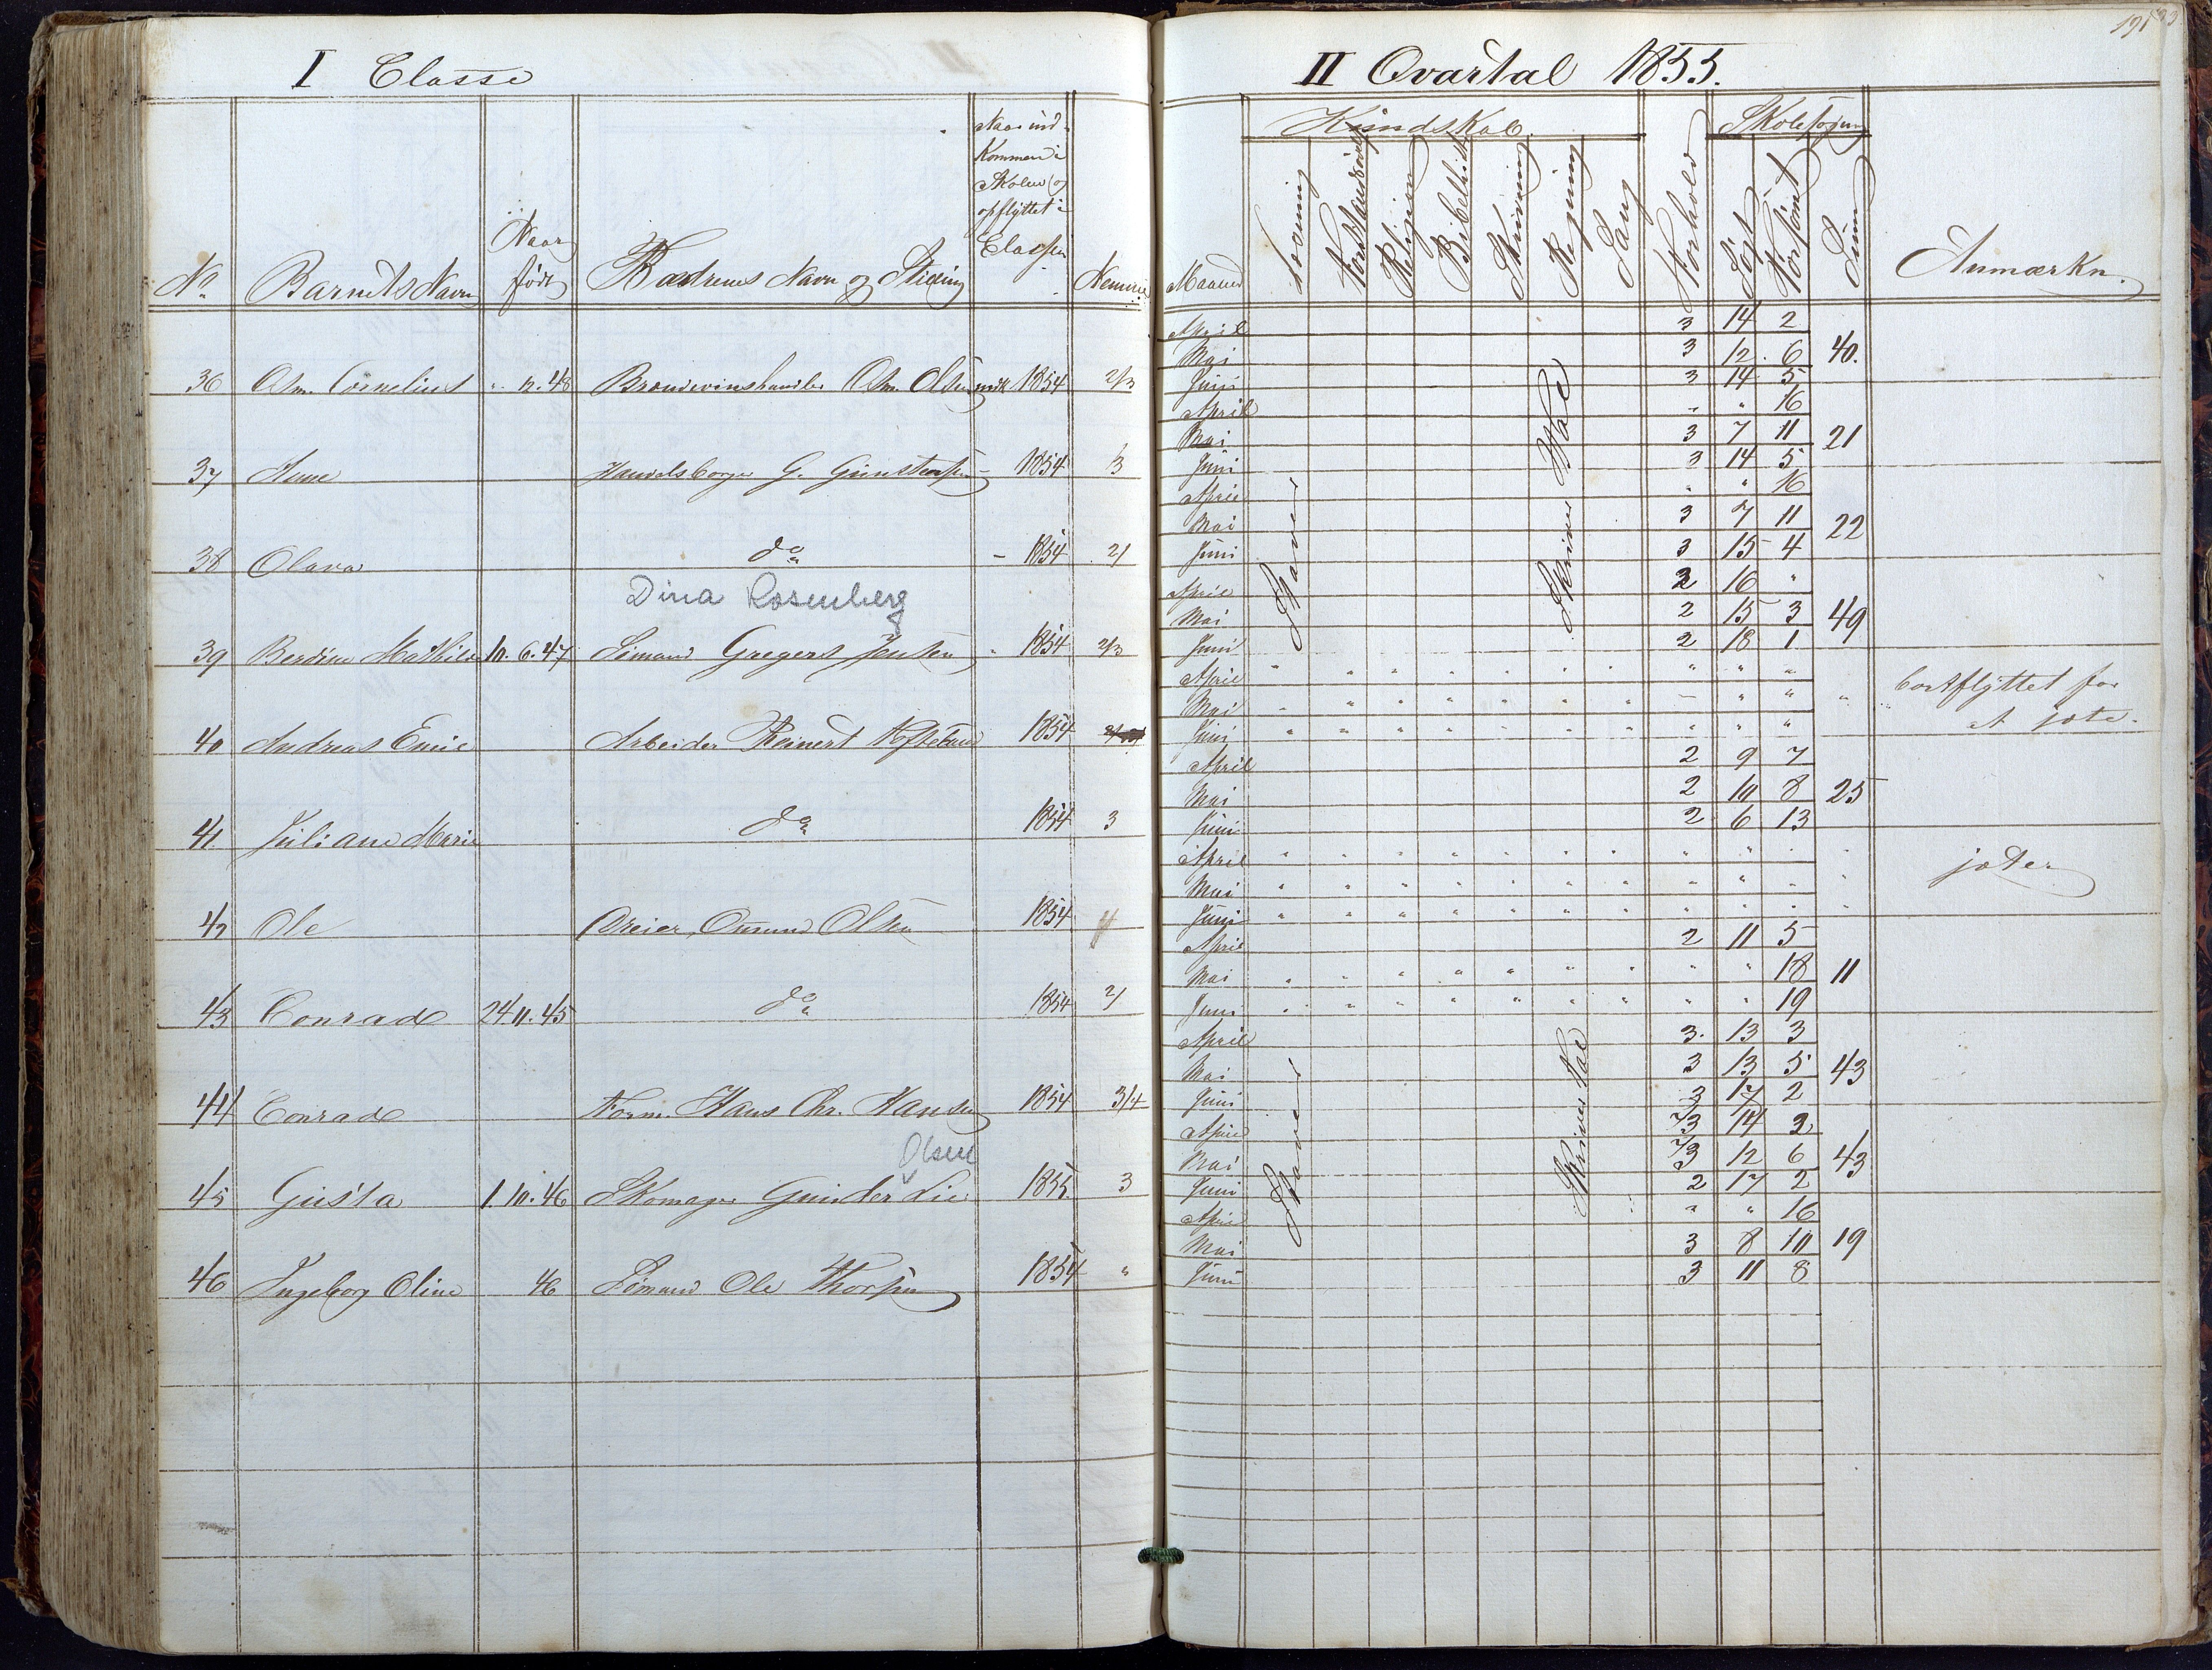 I Classe
II Qvartal 1855.
191
No Barnets Navn Naar født Forældrenes Navn og Stilling Naar ind-
kommen i
Skolen og
opflyttet i
Classen
Maaned Kundskab. Forhold Skolesøgning Søgt Forsømt Sum Anmærkn.
Læsning Forstandsøvelse Religion Bibelhist Skrivning Regning Sang
April 3 14 2
Mai 3 12 6 40.
36 Asm. Cornelius " 12.48 Brændevinshandler Asm. Olsen 1854 2/3 Juni 3 14 5
April " " 16
Mai 3 7 11 21
37 Anne Handelsborger G. Gunstensen – 1854 3 Juni 3 14 5
April " " 16
Mai 3 7 11 22
38 Olava do – 1854 2/ Juni 3 15 4
Dina Rosenberg
April 2 16 "
Mai 2 15 3 49
39 Berdine Mathilde 10.6.47 Sømand Gregers Jensen " 1854 2/3 Juni 2 18 1
April " " "
Mai – " " " bortflyttet for
40 Andreas Emil Arbeider Reinert 1854 Juni " " " at jæte.
April 2 9 7
Mai 2 10 8 25
41 Juliane Marie do 1854 3 Juni 2 6 13
April " " "
Mai " " " jæter
42 Ole Dreier Omund Olsen 1854 Juni " " "
April 2 11 5
Mai " " 18 11
43 Conrad 24.11.45 do 1854 2/ Juni " " 19
April 3. 13 3
Mai 3 13 5 43
44 Conrad Form. Hans Chr. Hansen 1854 3/4 Juni 3 17 2
Olsen
April 2/3 14 2
Mai 2/3 12 6 43
45 Gusta 1.10.46 Skomager Gunder Lie 1855 3 Juni 2 17 2
April " " 16
Mai 3 8 10 19
46 Ingeborg Oline 46 Sømand Ole Thorsen 1854 " Juni 3 11 8
Staver
Skriver Tal
Staver
Skriver Tal
Staver